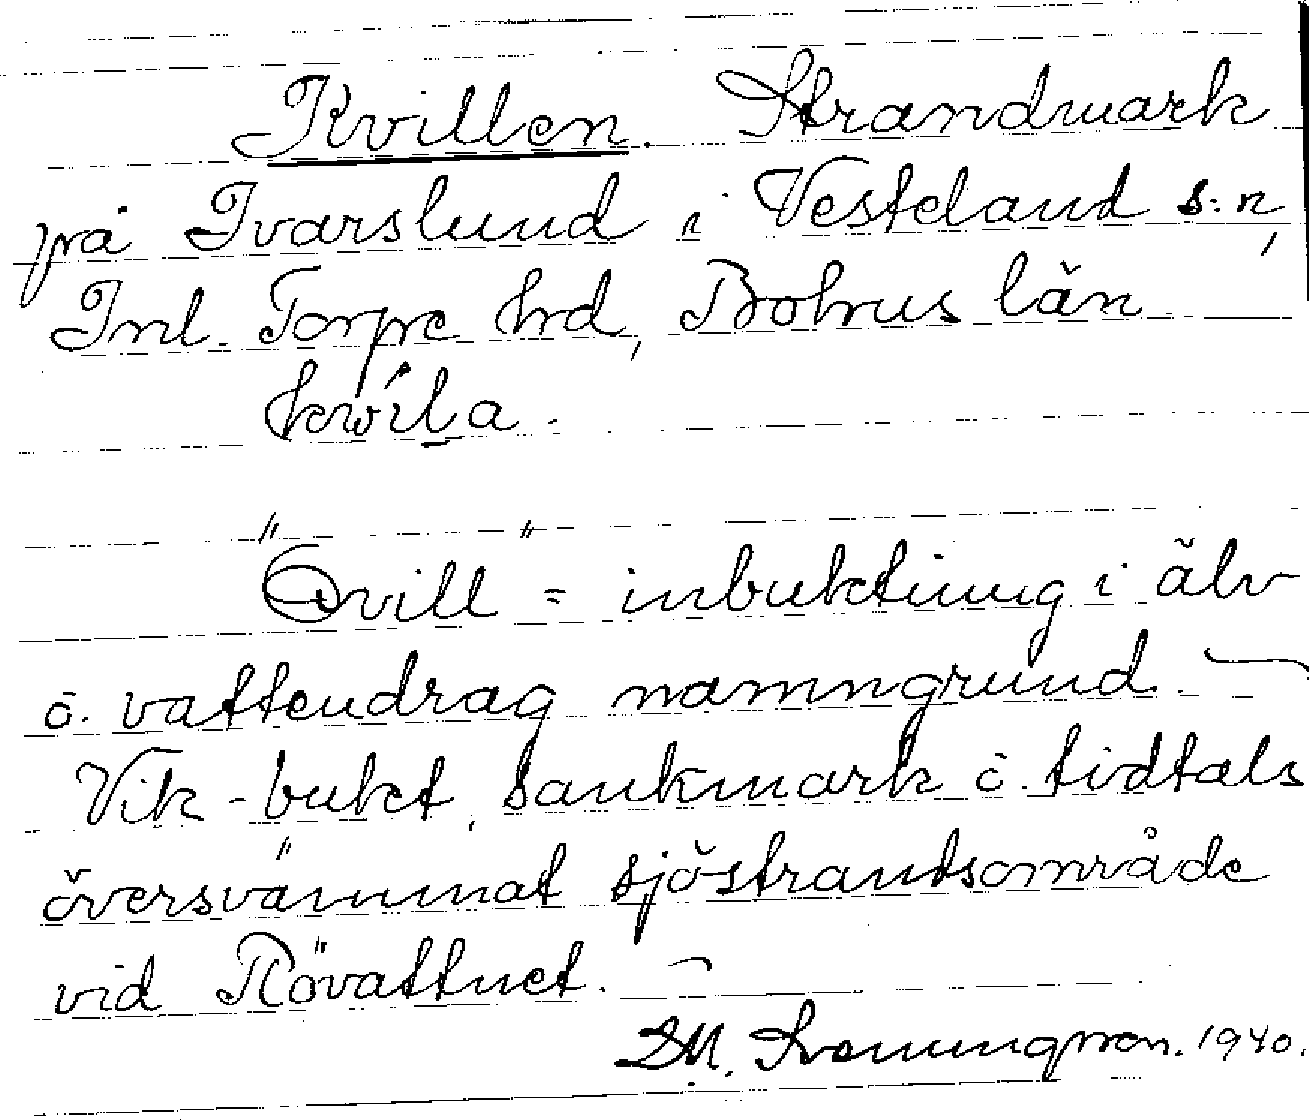 Kvillen. Strandmark
på Ivarslund i Vesteland s:n,
Inl. Torpe hrd, Bohus län
kwíla.
"Qvill" = inbuktning i älv
o. vattendrag namngrund. —
Vik - bukt, sankmark o. tidtals
översvämmat sjöstrandsområde
vid Rövattnet. —
1940.